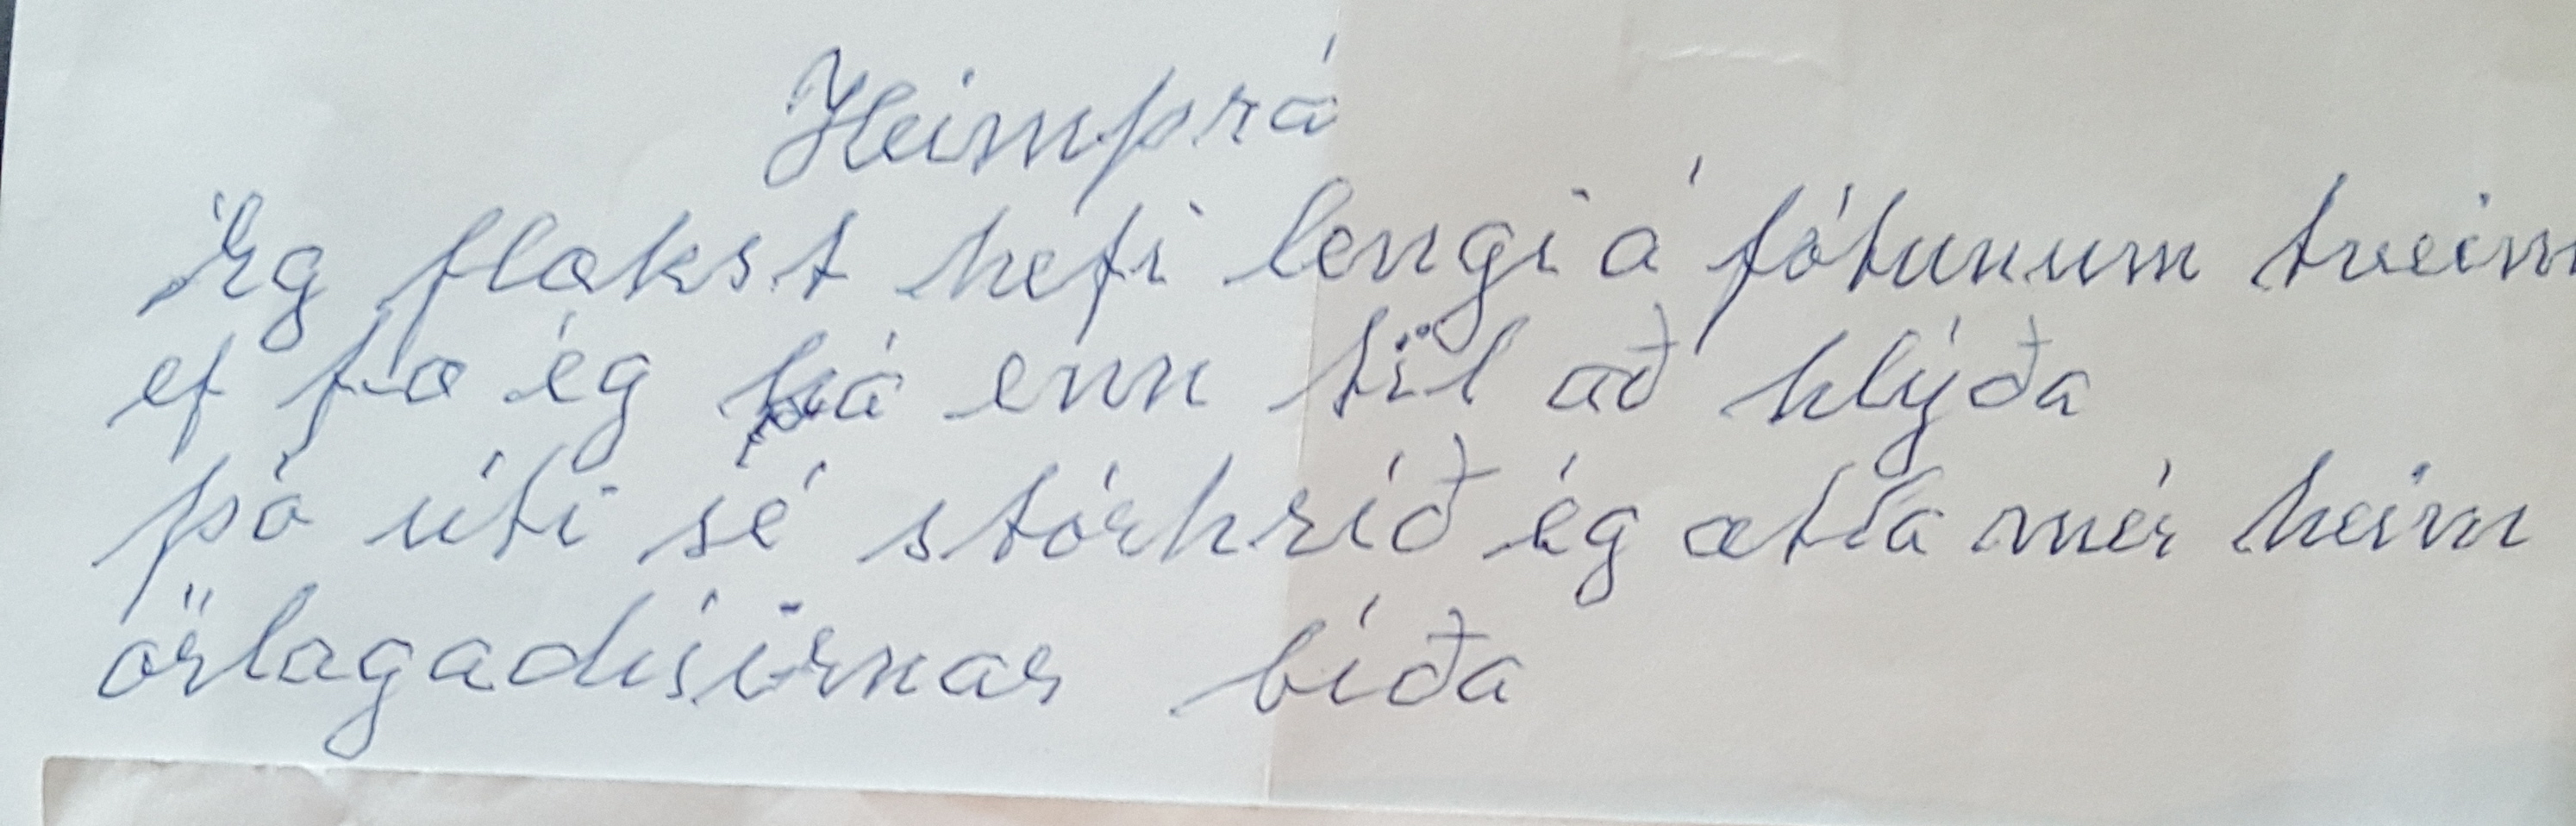 Heimþrá
Ég flækst hefi lengi á fótunum tveim
ef fæ ég þá enn til að hlýða
þó úti sé stórhríð ég ætla mér heim
örlagadísirnar bíða